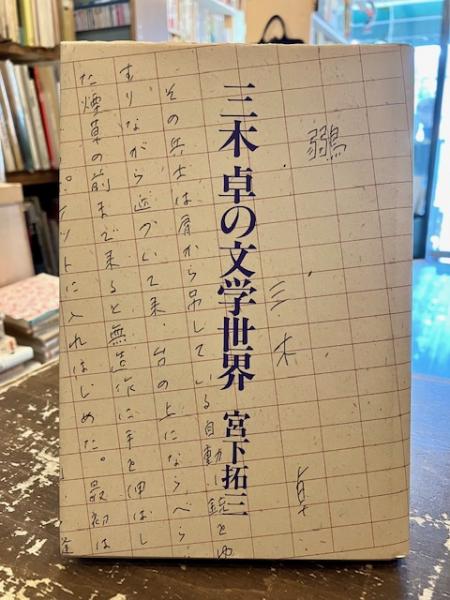 鶸
三木 卓
三木卓の文学世界 宮下拓三
その兵士は肩から吊している自動小銃をゆ
すりながら近づいて来、台の上にならべら
た煙草の前まで来ると無造作に手を伸ばし
ポケットに入れはじめた。最初は